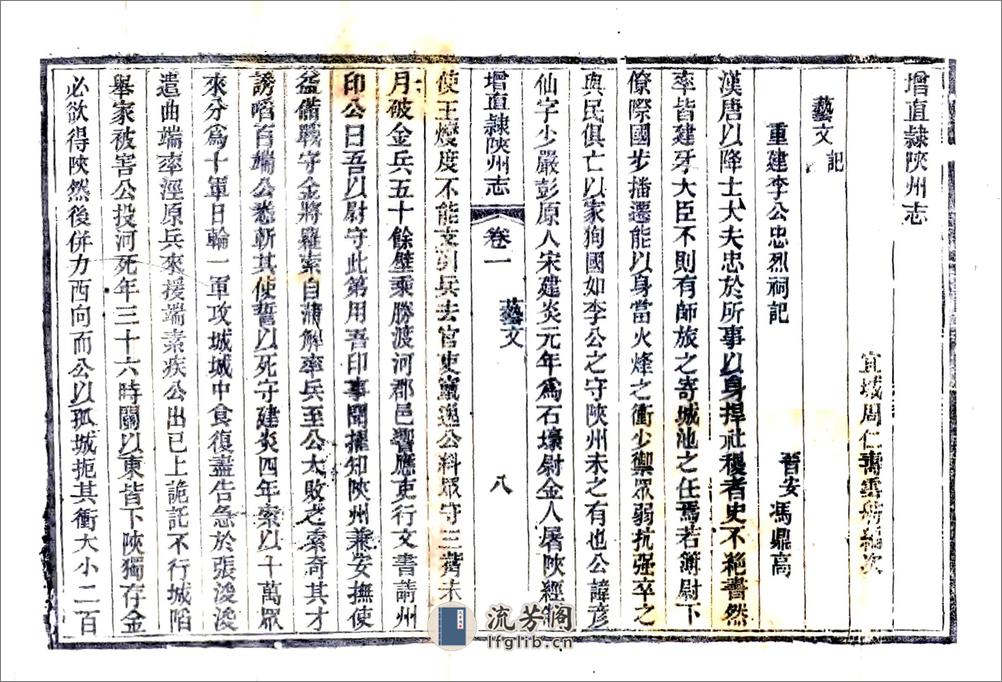 增直隸陝州志
宜城周仁壽雲舫編次
藝文記
重建李公忠烈祠記 晉安馮鼎高
漢唐以降士大夫忠於所事以身捍社稷者史不絕書然
率皆建牙大臣不則有師旅之寄城池之任焉若簿尉下
僚際國步播遷能以身當火烽之衝少禦眾弱抗强卒之
與民俱亡以家狥國如李公之守陝州未之有也公諱彥
仙字少嚴彭原人宋建炎元年為石壕尉金人屠陝經
增直隸陝州志 卷一 藝文 八
使王燮度不能支引兵去官吏竄逸公料眾守三觜未
月破金兵五十餘壁乘勝渡河郡邑響應吏行文書請州
印公曰吾以尉守此第用吾印事聞擢知陝州兼安撫使
益備戰守金將羅索自蒲解率兵至公大敗之索奇其才
誘啗百端公悉斬其使誓以死守建炎四年索以十萬眾
來分為十軍日輪一軍攻城城中食復盡告急於張浚浚
遣曲端率涇原兵來援端素疾公出已上詭託不行城陷
舉家被害公投河死年三十六時關以東皆下陝獨存金
必欲得陝然後併力西向而公以孤城扼其衝大小二百
流芳阁
lfglib.cn